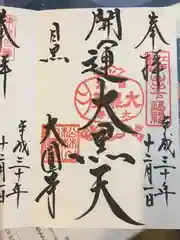 奉拝
平成三十年
十二月一日
開運大黒天
目黒
大圓寺
奉拝
平成三十年
十二月一日